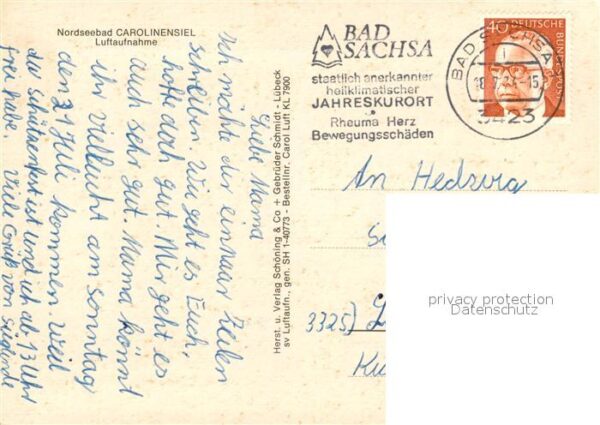 Nordseebad CAROLINENSIEL
Luftaufnahme
Liebe Mama
Ich möchte dir ein paar Zeilen
schreiben. Wie geht es Euch,
hoffe doch gut. Mir geht es
auch sehr gut. Mama könnt
ihr vielleicht am Sonntag
den 21 Juli kommen. weil
da Schützenfest ist und ich ab 13 Uhr
frei habe. Viele Grüße von
Herst. u. Verlag Schöning & Co + Gebrüder Schmidt - Lübeck
sv Luftaufn., gen. SH 1-40773 - Bestellnr. Carol Luft KL 7900
BAD
SACHSA
staatlich anerkannter
heilklimatischer
JAHRESKURORT
Rheuma Herz
Bewegungsschäden
BAD SACHSA
3423
40 DEUTSCHE BUNDESPOST
An Hedwig
3325)
privacy protection
Datenschutz